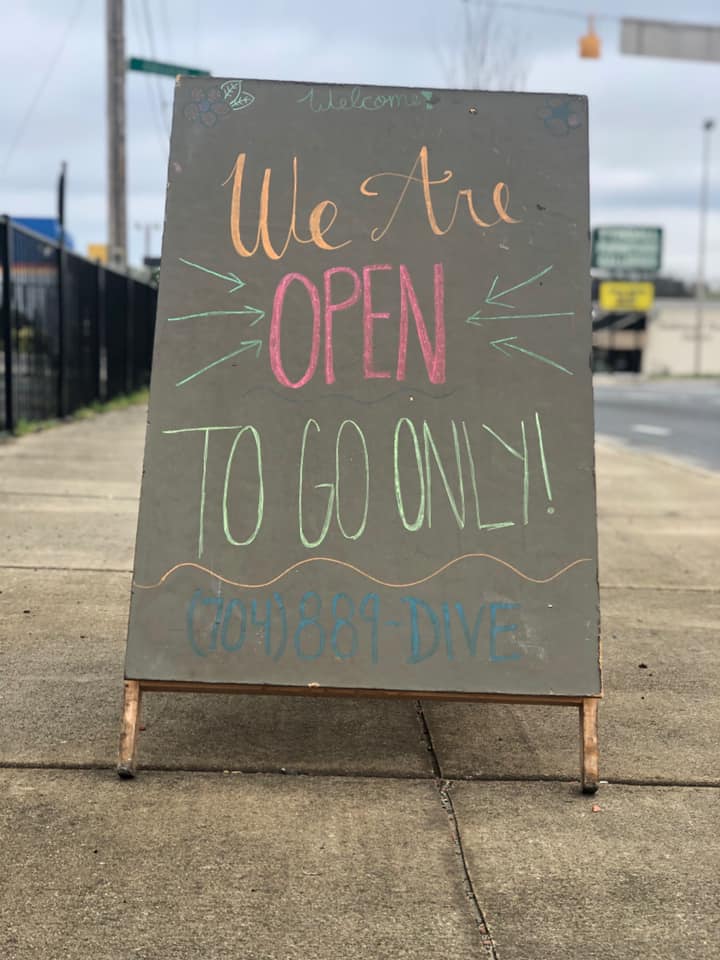 Welcome!
We Are
OPEN
TO GO ONLY!
(704)889-DIVE